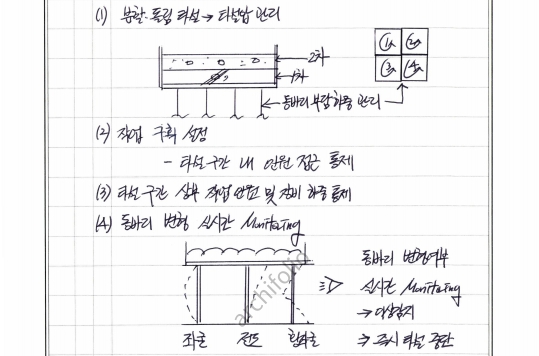 (1) 분할·독립 타설 → 타설압 관리
2차
1차
① ②
③ ④
동바리 부담하중 관리
(2) 작업 구획 설정
- 타설 구간 내 인원 접근 통제
(3) 타설 구간 상부 작업 인원 및 장비 하중 통제
(4) 동바리 변형 실시간 Monitoring
동바리 변형여부
실시간 Monitoring
→ 이상감지
⇒ 즉시 타설 중단
좌굴 전도 휨좌굴
archifolio